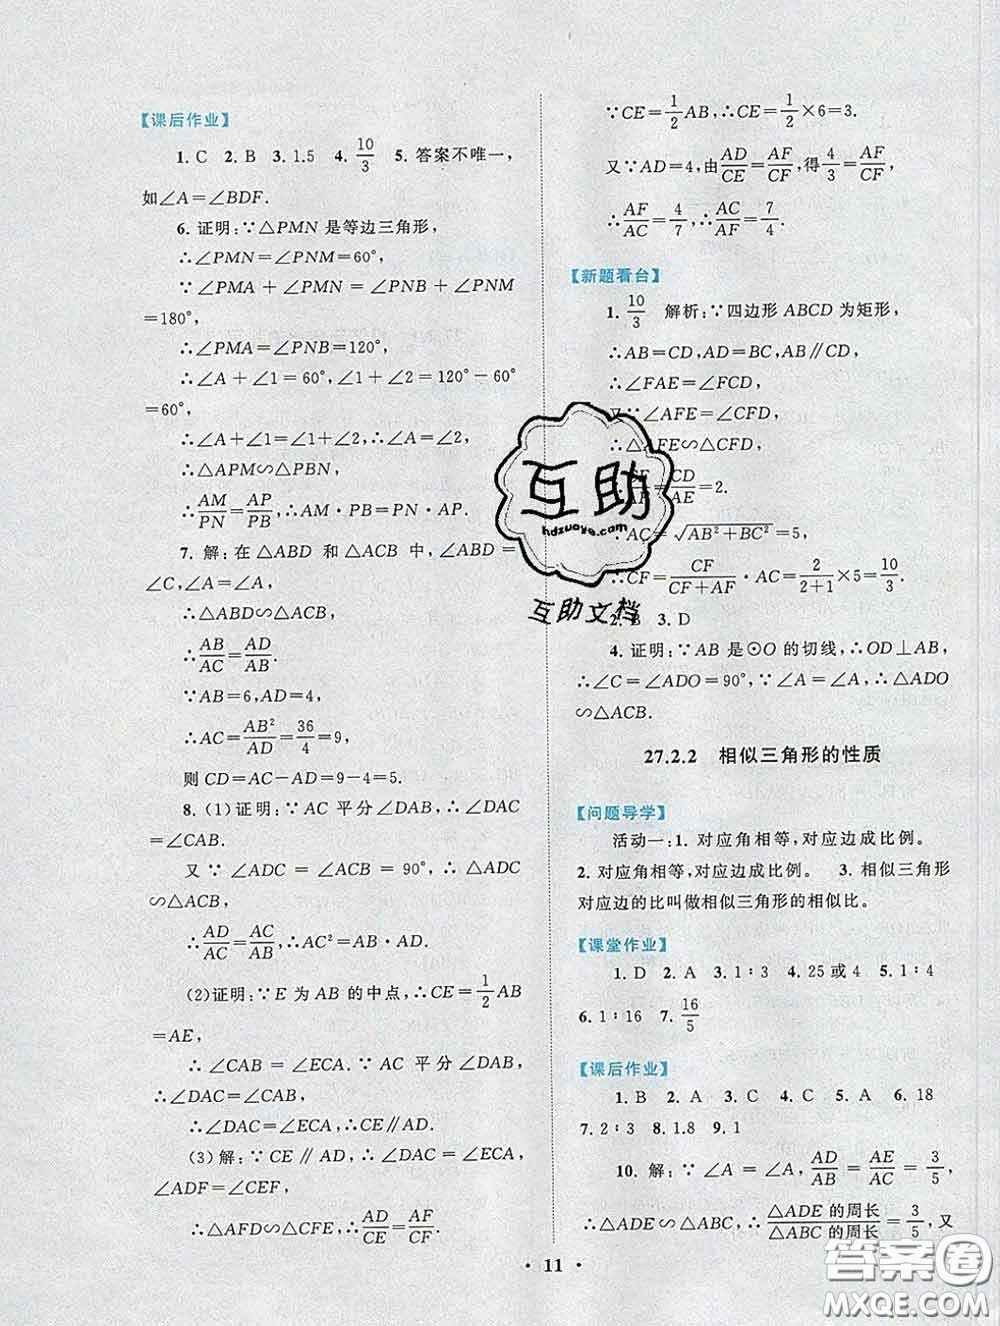 【课后作业】
1. C  2. B  3. 1.5  4. 10/3  5. 答案不唯一，
如∠A＝∠BDF.
6. 证明：∵△PMN 是等边三角形，
∴∠PMN＝∠PNM＝60°，
∴∠PMA＋∠PMN＝∠PNB＋∠PNM
＝180°，
∴∠PMA＝∠PNB＝120°，
∴∠A＋∠1＝60°，∠1＋∠2＝120°－60°
＝60°，
∴∠A＋∠1＝∠1＋∠2，∴∠A＝∠2，
∴△APM∽△PBN，
∴AM/PN＝AP/PB，∴AM·PB＝PN·AP.
7. 解：在△ABD 和△ACB 中，∠ABD＝
∠C，∠A＝∠A，
∴△ABD∽△ACB，
∴AB/AC＝AD/AB.
∵AB＝6，AD＝4，
∴AC＝AB²/AD＝36/4＝9，
则 CD＝AC－AD＝9－4＝5.
8. (1)证明：∵AC 平分∠DAB，∴∠DAC
＝∠CAB.
又∵∠ADC＝∠ACB＝90°，∴△ADC
∽△ACB，
∴AD/AC＝AC/AB，∴AC²＝AB·AD.
(2)证明：∵E 为 AB 的中点，∴CE＝1/2AB
＝AE，
∴∠CAB＝∠ECA. ∵AC 平分∠DAB，
∴∠DAC＝∠CAB，
∴∠DAC＝∠ECA，∴CE∥AD.
(3)解：∵CE∥AD，∴∠DAC＝∠ECA，
∠ADF＝∠CEF，
∴△AFD∽△CFE，∴AD/CE＝AF/CF.
∵CE＝1/2AB，∴CE＝1/2×6＝3.
又∵AD＝4，由AD/CE＝AF/CF，得4/3＝AF/CF，
∴AF/AC＝4/7，∴AC/AF＝7/4.
【新题看台】
1. 10/3  解析：∵四边形 ABCD 为矩形，
∴AB＝CD，AD＝BC，AB∥CD，
∴∠FAE＝∠FCD，
又∵∠AFE＝∠CFD，
∴△AFE∽△CFD，
＝CD/AE＝2.
∵AC＝√(AB²＋BC²)＝5，
∴CF＝CF/(CF＋AF)·AC＝2/(2＋1)×5＝10/3.
2. B  3. D
4. 证明：∵AB 是⊙O 的切线，∴OD⊥AB，
∴∠C＝∠ADO＝90°，∵∠A＝∠A，∴△ADO
∽△ACB.
27.2.2 相似三角形的性质
【问题导学】
活动一：1. 对应角相等，对应边成比例。
2. 对应角相等，对应边成比例。 3. 相似三角形
对应边的比叫做相似三角形的相似比。
【课堂作业】
1. D  2. A  3. 1∶3  4. 25或4  5. 1∶4
6. 1∶16  7. 16/5
【课后作业】
1. B  2. A  3. C  4. C  5. A  6. 18
7. 2∶3  8. 1.8  9. 1
10. 解：∵∠A＝∠A，AD/AB＝AE/AC＝3/5，
∴△ADE∽△ABC，∴△ADE的周长/△ABC的周长＝3/5，又
· 11 ·
互助
hdzuoye.com
互助文档
答案圈
MXQE.COM